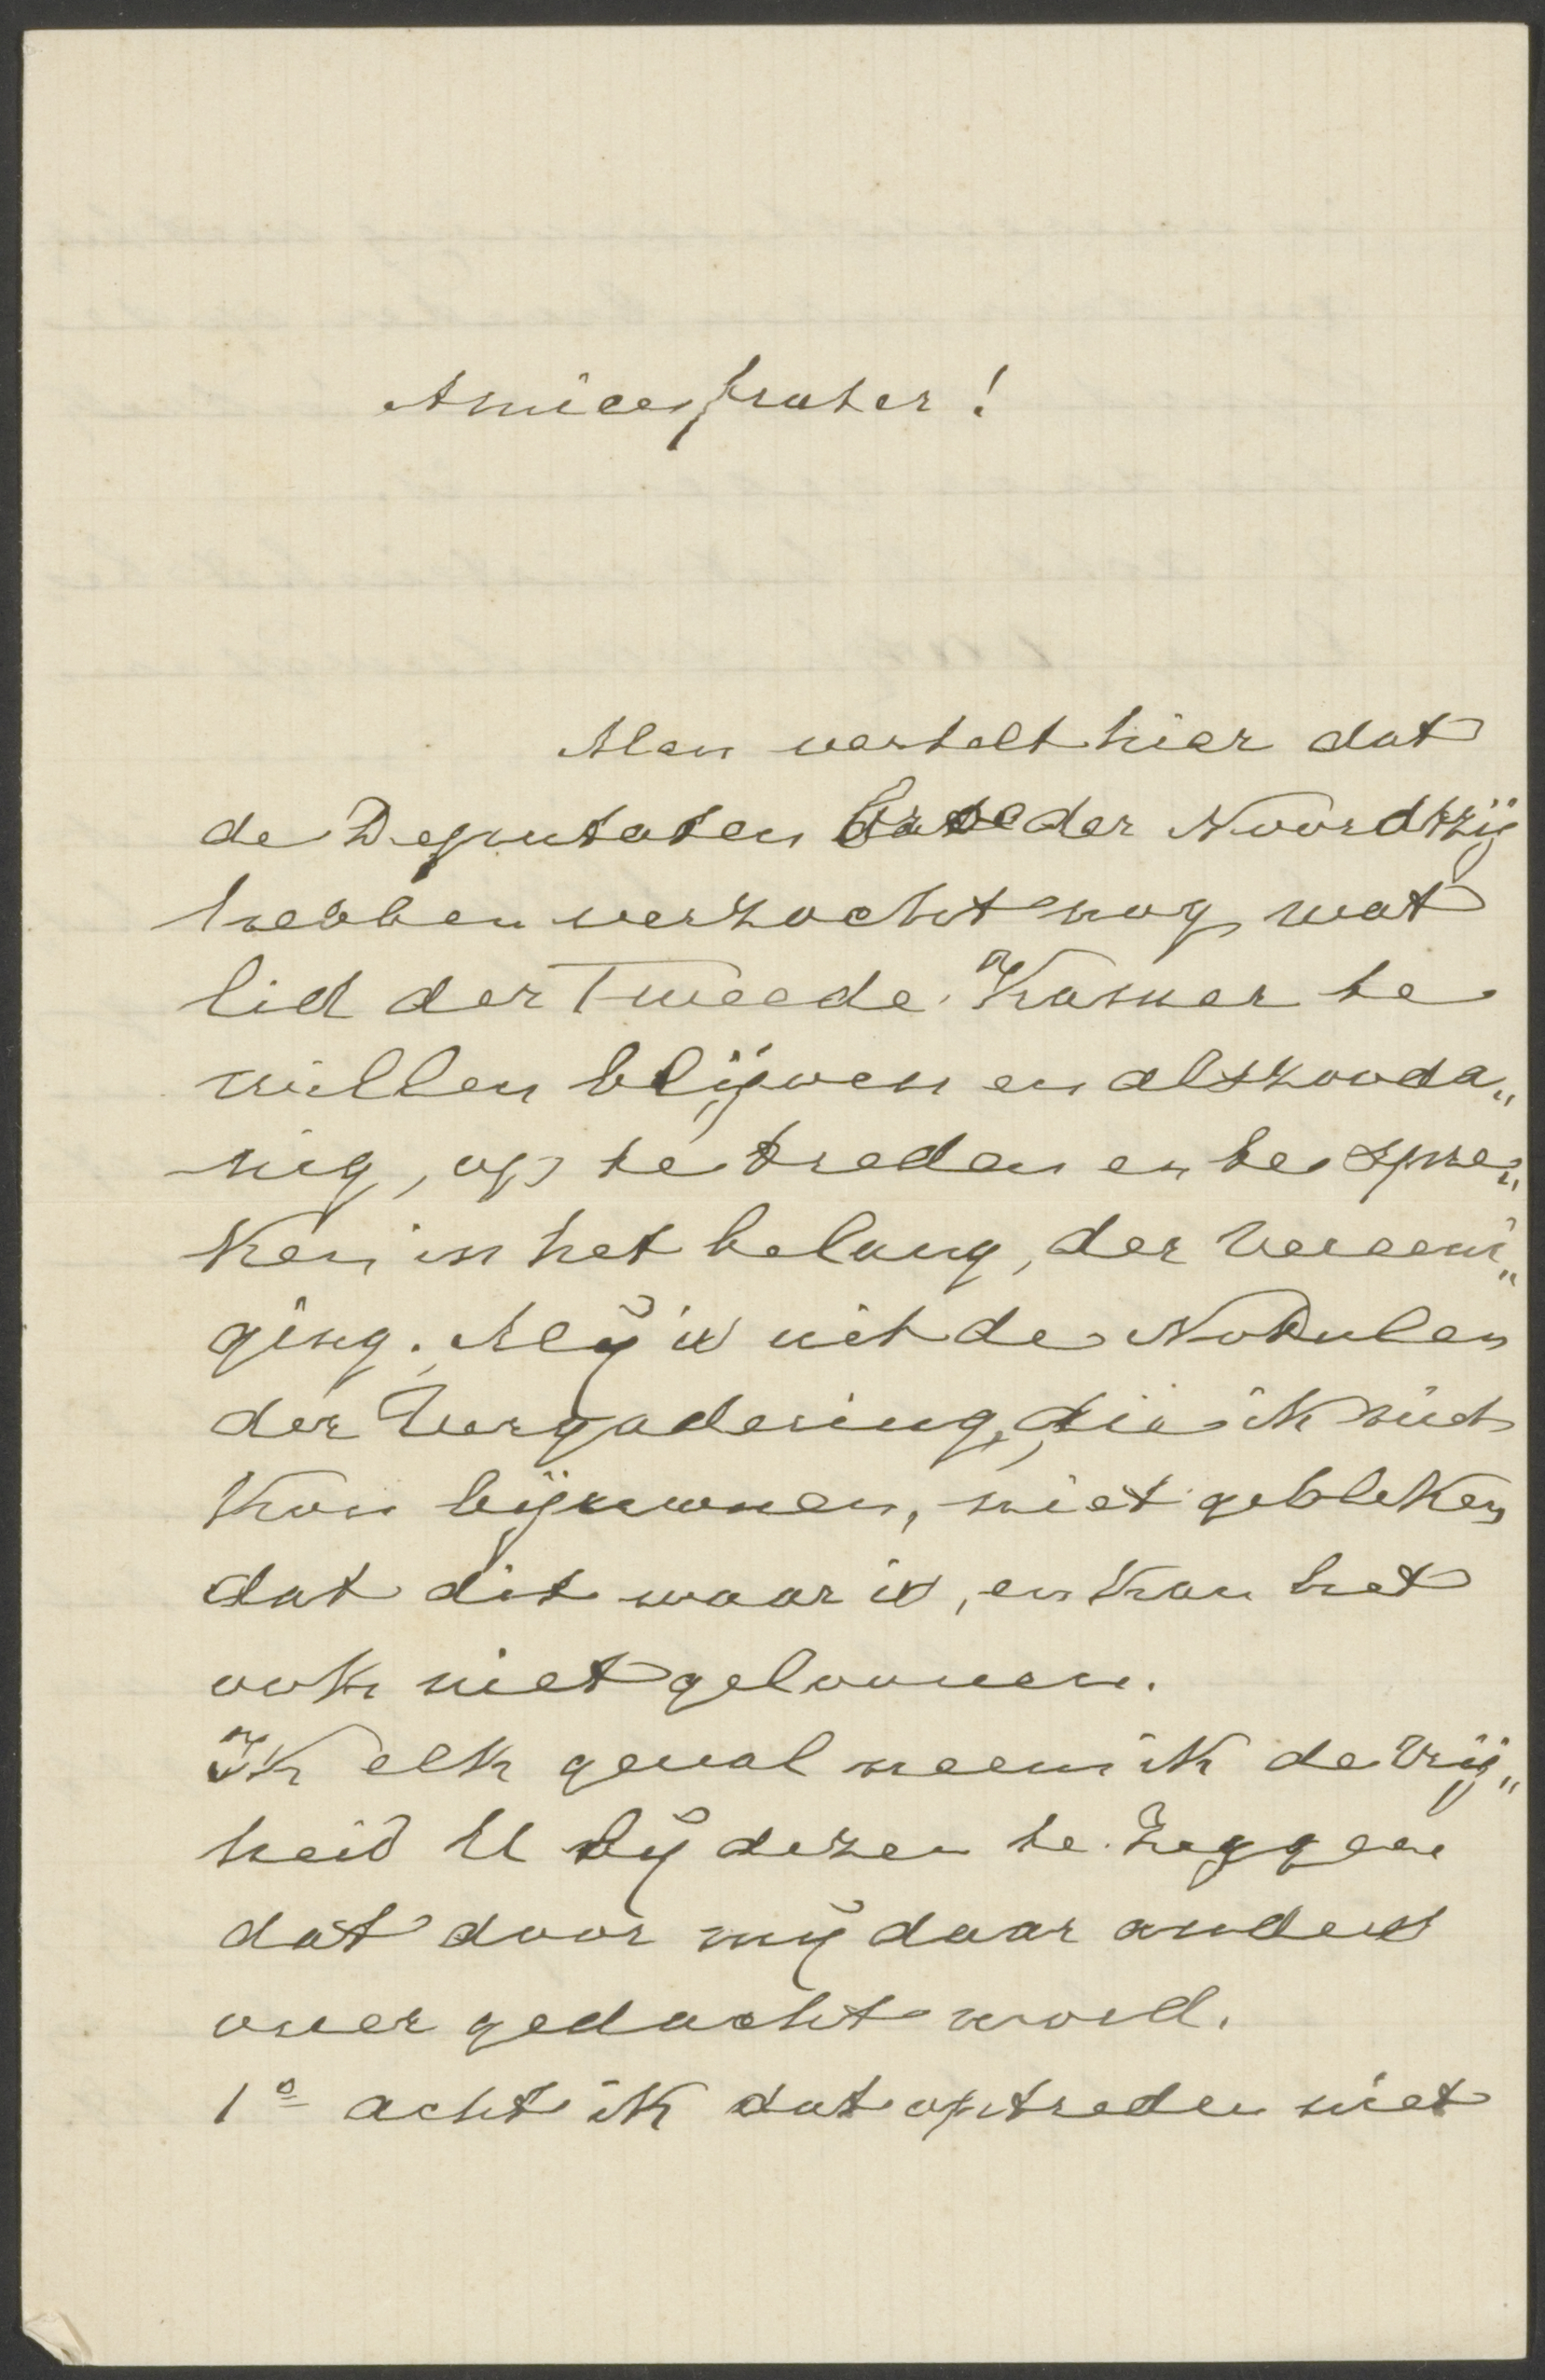 Amice frater!
Men vertelt hier dat
de Deputaten Broeder Noordtzij
hebben verzocht nog wat
lid der Tweede Kamer te
willen blijven en alszooda„
nig, op te treden en te spre„
ken in het belang, der Vereeni„
ging. Mij is uit de Notulen
der Vergadering, die ik niet
kon bijwonen, niet gebleken
dat dit waar is, en kan het
ook niet gelooven.
In elk geval neem ik de Vrij„
heid U bij dezen te zeggen
dat door mij daar anders
over gedacht word.
1º acht ik dat optreden niet